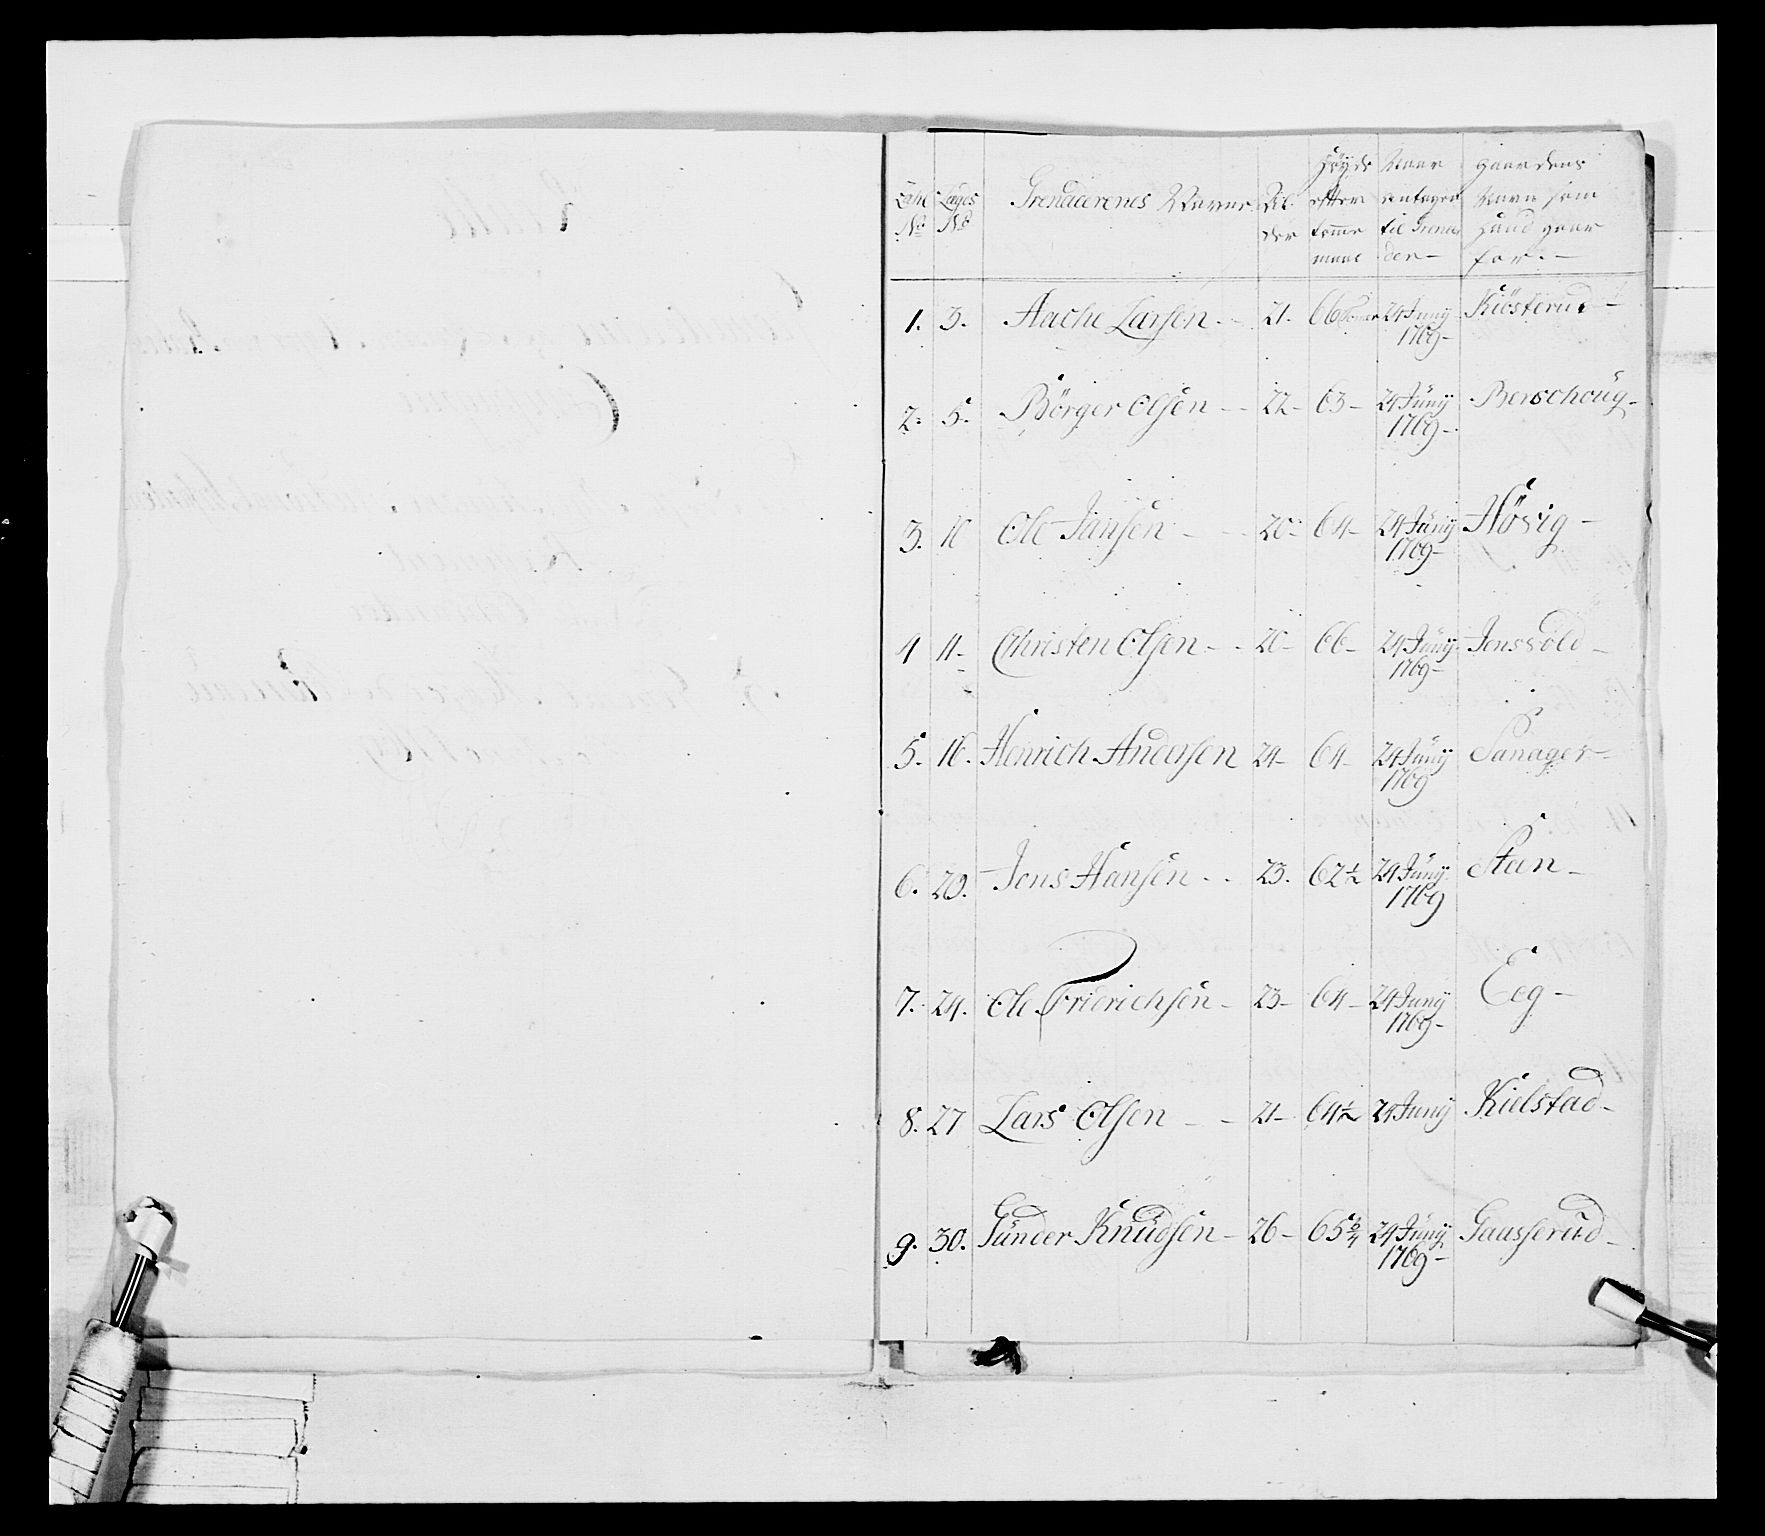 Zahl No | Lægs No | Grenaderenes Navne | Al der | Høyde efter tomme maal | Naar antagen til Grena der— | Gaardens Navn som Hand gaar for.—
1. 3. Aache Larsen.— 21. 66 24 Juny 1769— Kiösterud—
2. 5. Börger Olsen — 22— 63— 24 Juny 1769— Berschoug—
3. 10 Ole Jansen — 20— 64— 24 Juny 1769— Hösvig—
4 11— Christen Olsen — 20— 66— 24 Juny 1769— Jensvold—
5. 16. Henrich Andersen 24— 64— 24 Juny 1769 Sanager—
6. 20. Jens Hansen — 23. 62½ 24 Juny 1769 Steen—
7. 24. Ole Fridrichsen— 23— 64— 24 Juny 1769— Eeg—
8. 27 Lars Olsen — 21— 64½ 24 Juny Kielstad—
9. 30. Gunder Knudsen— 26— 65¾ 24 Juny 1769— Gaasserud—